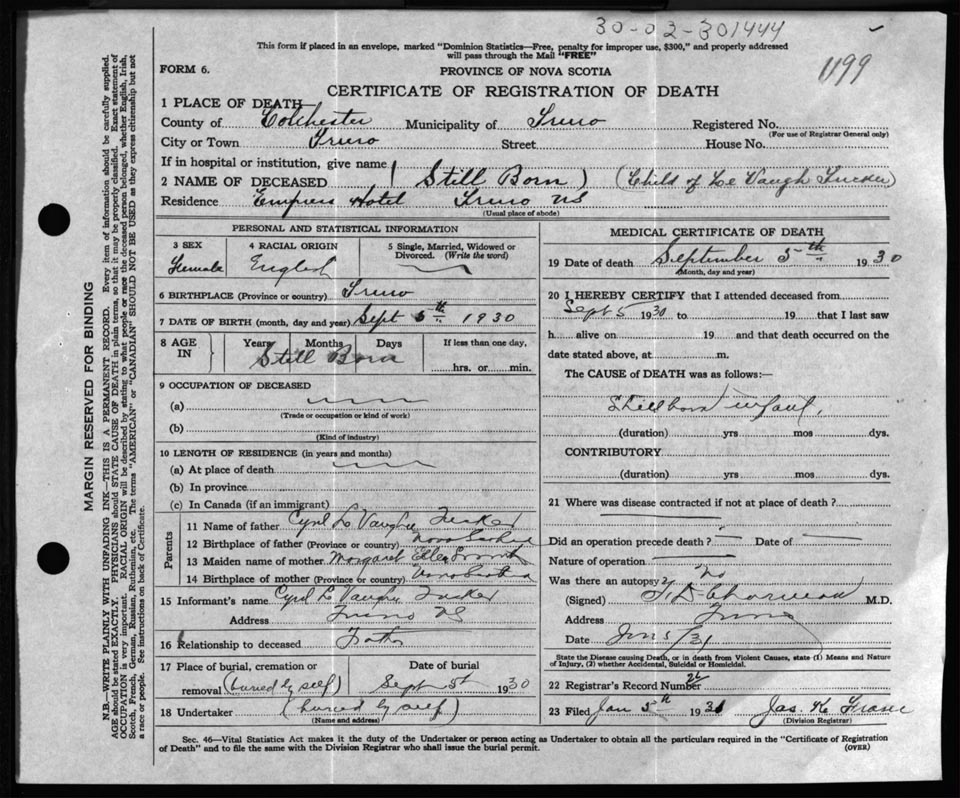 30-02-301444
1199
This form if placed in an envelope, marked "Dominion Statistics—Free, penalty for improper use, $300," and properly addressed
will pass through the Mail "FREE"
FORM 6.
PROVINCE OF NOVA SCOTIA
CERTIFICATE OF REGISTRATION OF DEATH
MARGIN RESERVED FOR BINDING
N.B.—WRITE PLAINLY WITH UNFADING INK—THIS IS A PERMANENT RECORD. Every item of information should be carefully supplied.
AGE should be stated EXACTLY. PHYSICIANS should STATE CAUSE OF DEATH in plain terms, so that it may be properly classified. Exact statement of
OCCUPATION is very important. RACIAL ORIGIN will be described by stating to what people or race the deceased person belonged, whether English, Irish,
Scotch, French, German, Russian, Ruthenian, etc. The terms "AMERICAN" or "CANADIAN" SHOULD NOT BE USED as they express citizenship but not
a race or people. See instructions on back of Certificate.
1 PLACE OF DEATH
County of Colchester Municipality of Truro Registered No.
(For use of Registrar General only)
City or Town Truro Street House No.
If in hospital or institution, give name
2 NAME OF DECEASED (Still Born) (Child of Le Vaugh Tucker)
Residence Empress Hotel Truro NS
(Usual place of abode)
PERSONAL AND STATISTICAL INFORMATION
3 SEX Female
4 RACIAL ORIGIN English
5 Single, Married, Widowed or
Divorced. (Write the word)
6 BIRTHPLACE (Province or country) Truro
7 DATE OF BIRTH (month, day and year) Sept 5th 1930
8 AGE IN Years Months Days If less than one day,
Still Born hrs. or min.
9 OCCUPATION OF DECEASED
(a)
(Trade or occupation or kind of work)
(b)
(Kind of industry)
10 LENGTH OF RESIDENCE (in years and months)
(a) At place of death
(b) In province
(c) In Canada (if an immigrant)
Parents
11 Name of father Cyril Le Vaughn Tucker
12 Birthplace of father (Province or country) Nova Scotia
13 Maiden name of mother Margaret Ellen
14 Birthplace of mother (Province or country) Nova Scotia
15 Informant's name Cyril Le Vaughn Tucker
Address Truro NS
16 Relationship to deceased Father
17 Place of burial, cremation or Date of burial
removal (buried by self) Sept 5th 1930
18 Undertaker (buried by self)
(Name and address)
MEDICAL CERTIFICATE OF DEATH
19 Date of death September 5th 1930
(Month, day and year)
20 I HEREBY CERTIFY that I attended deceased from
Sept 5 1930 to 19 that I last saw
h alive on 19 and that death occurred on the
date stated above, at m.
The CAUSE of DEATH was as follows:—
Stillborn infant,
(duration) yrs mos dys.
CONTRIBUTORY
(duration) yrs mos dys.
21 Where was disease contracted if not at place of death?
Did an operation precede death? Date of
Nature of operation
Was there an autopsy? No
(Signed) M.D.
Address Truro
Date Jan 5/31
State the Disease causing Death, or in death from Violent Causes, state (1) Means and Nature
of Injury, (2) whether Accidental, Suicidal or Homicidal.
22 Registrar's Record Number
23 Filed Jan 5th 1931 Jas. K Fraser
(Division Registrar)
Sec. 46—Vital Statistics Act makes it the duty of the Undertaker or person acting as Undertaker to obtain all the particulars required in the "Certificate of Registration
of Death" and to file the same with the Division Registrar who shall issue the burial permit.
(OVER)